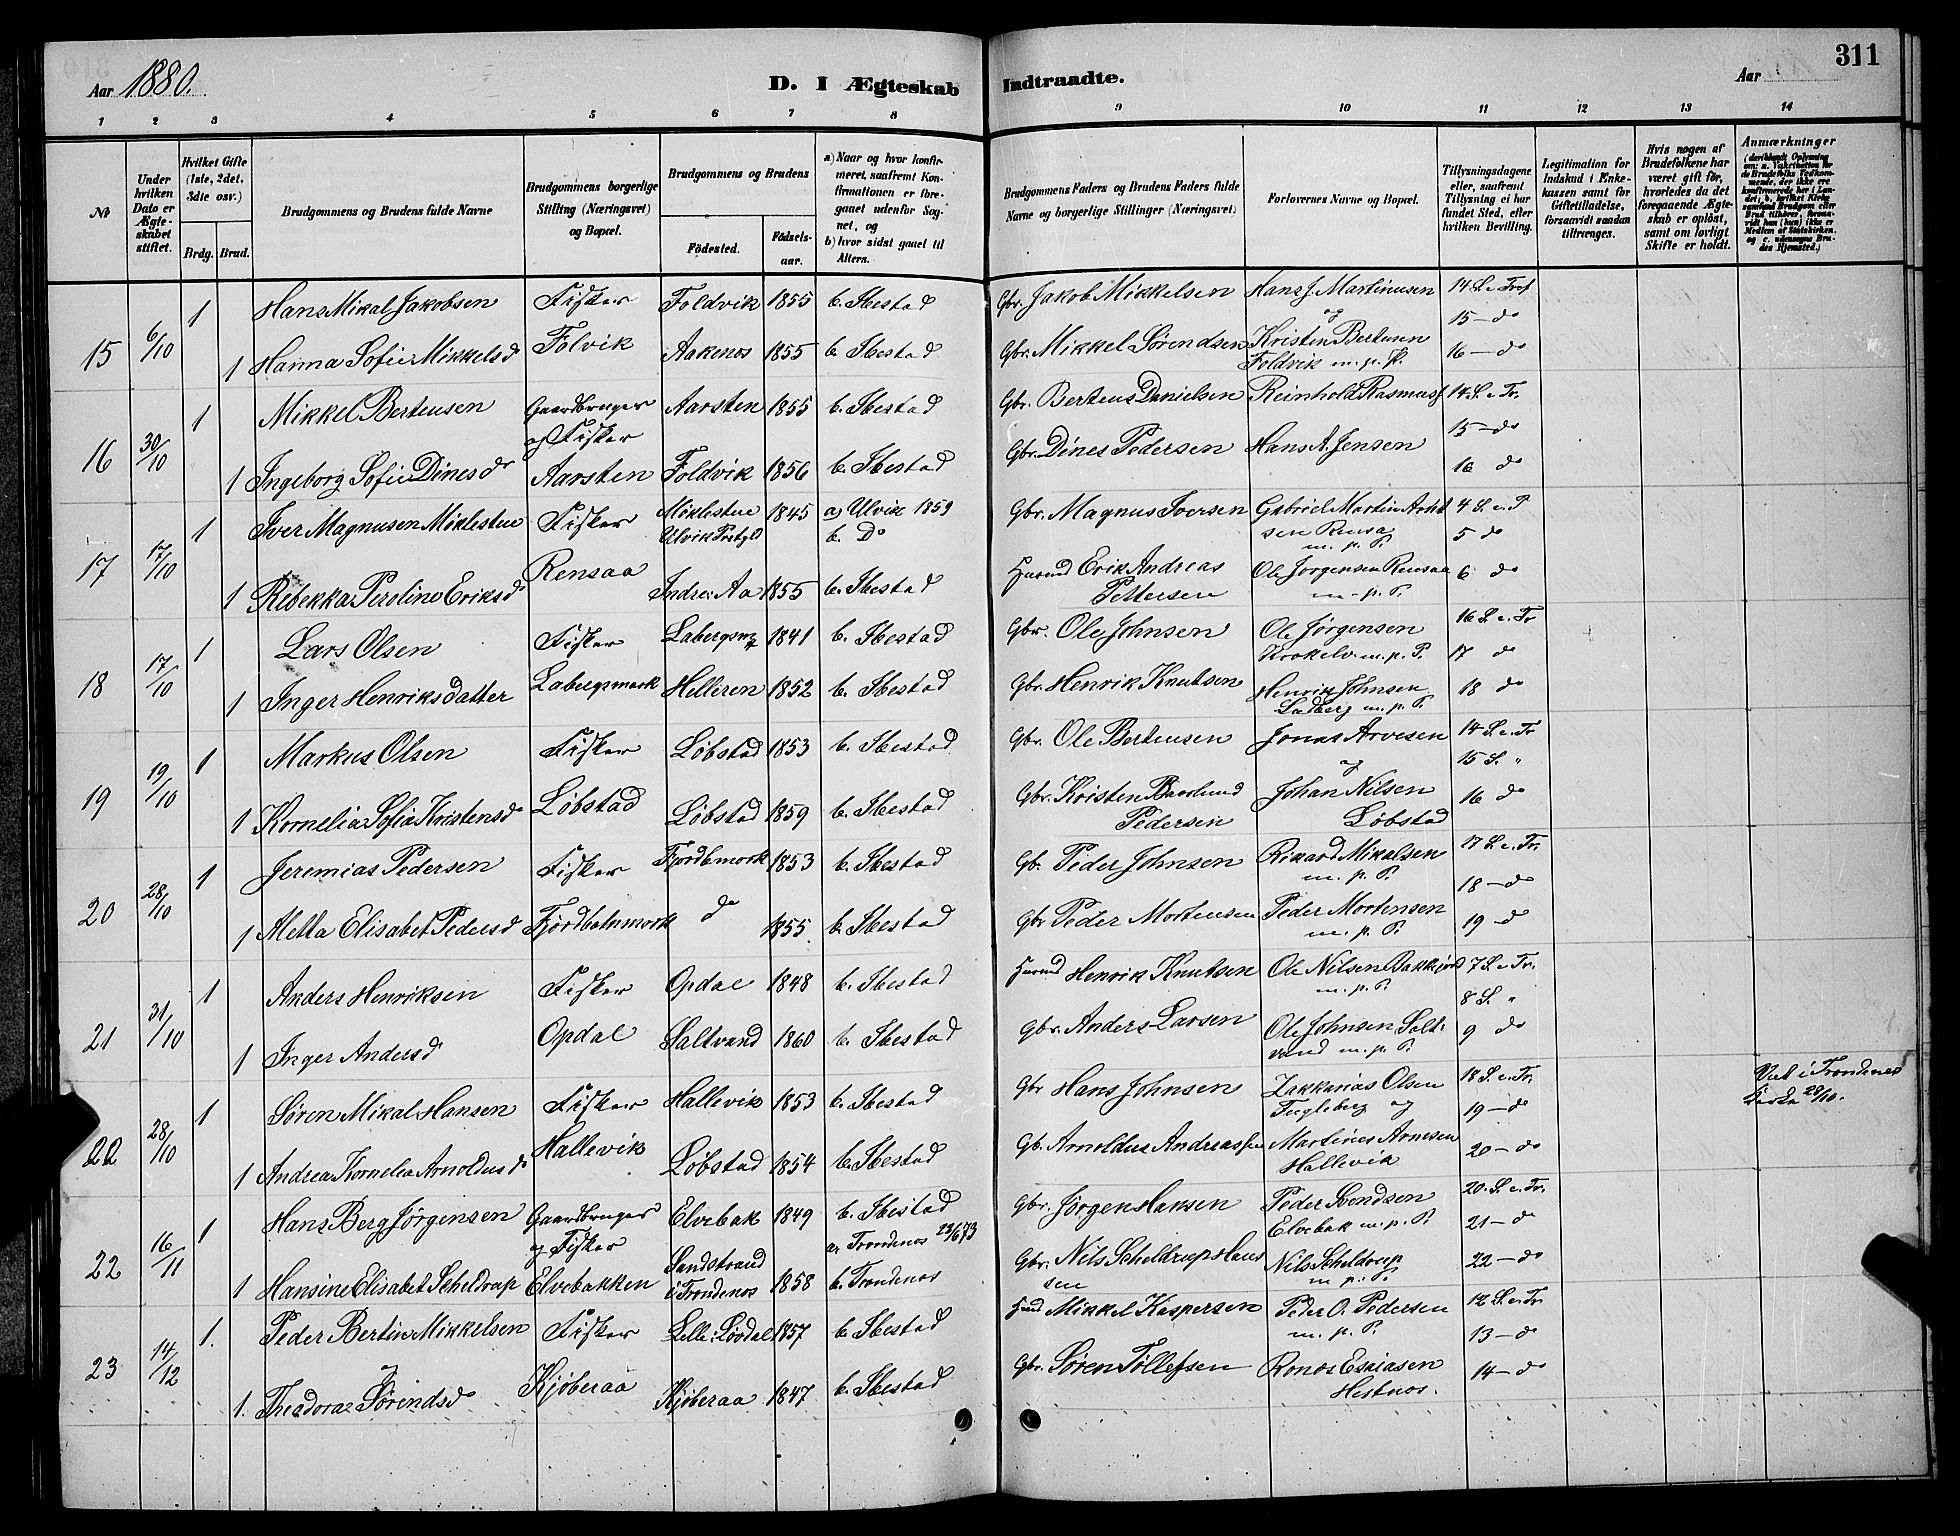 Aar 1880. D. I Ægteskab Indtraadte. Aar 311
1 2 3 4 5 6 7 8 9 10 11 12 13 14
No
Under hvilken Dato er Ægteskabet stiftet.
Hvilket Gifte (1ste, 2det, 3die osv.)
Brdg. Brud.
Brudgommens og Brudens fulde Navne
Brudgommens borgerlige Stilling (Næringsvei) og Bopæl.
Brudgommens og Brudens
Fødested. Fødselsaar.
a) Naar og hvor konfirmeret, saafremt Konfirmationen er foregaaet udenfor Sognet, og
b) hvor sidst gaaet til Alters.
Brudgommens Faders og Brudens Faders fulde Navne og borgerlige Stillinger (Næringsvei)
Forlovernes Navne og Bopæl.
Tillysningsdagene eller, saafremt Tillysning ei har fundet Sted, efter hvilken Bevilling.
Legitimation for Indskud i Enkekassen samt for Giftetilladelse, forsaavidt saadan tiltrænges.
Hvis nogen af Brudefolkene har været gift før, hvorledes da det foregaaende Ægteskab er opløst, samt om lovligt Skifte er holdt.
Anmærkninger
15 6/10 1 Hans Mikal Jakobsen Fisker Foldvik 1855 b. Ibestad Gbr. Jakob Mikkelsen Hans J. Martinusen 14 S. e. Tref
Folvik og 15 – do
1 Hanna Sofie Mikkelsd Aakenes 1855 b. Ibestad Gbr. Mikkel Sørendsen Kristen Bertusen 16 – do
Foldvik m. p. P.
16 30/10 1 Mikkel Berteusen Gaardbruger Aarsten 1855 b. Ibestad Gbr. Berteus Danielsen Reinhold Rasmuss 14 S. e. Tr.
og Fisker 15 – do
1 Ingeborg Sofie Dinesdr Aarsten Foldvik 1856 b. Ibestad Gbr. Dines Pedersen Hans A. Jensen 16 do
17 17/10 1 Iver Magnusen Miklestue Fisker Miklestue 1845 a) Ulvik 1859 Gbr. Magnus Iversen Gabriel Martin Arnt 4 S. e. P
Ulvik Prstgld b. Do sen Rensa 5 do
Rensaa m. p. P.
1 Rebekka Peroline Eriksd Indre Aa 1855 b. Ibestad Husmd Erik Andreas Ole Jørgensen Rensaa 6 do
Pettersen m. p. P.
18 17/10 1 Lars Olsen Fisker Labergsm 1841 b. Ibestad Gbr. Ole Johnsen Ole Jørgensen 16 S. e. Tr
Krokelv m. p. P. 17 do
1 Inger Henriksdatter Labergsmark Helleren 1852 b. Ibestad Gbr. Henrik Knutsen Henrik Johnsen 18 do
Ladberg m. p. P.
19 19/10 1 Markus Olsen Fisker Løbstad 1853 b. Ibestad Gbr. Ole Berteusen Jonas Arvesen 14 S. e. Tr
og 15 S. "
1 Kornelia Sofia Kristensd Løbstad Løbstad 1859 b. Ibestad Gbr. Kristen Baarlund Johan Nilsen 16 do
Pedersen Løbstad
20 28/10 1 Jeremias Pedersen Fisker Fjordbmork 1853 b. Ibestad Gb. Peder Johnsen Rikard Mikalsen 17 S. e. Tr.
m. p. P. 18 – do
1 Metta Elisabet Pedersd Fjordbotnmork do 1855 b. Ibestad Gbr Peder Mortensen Peder Mortensen 19 – do
m. p. P.
21 31/10 1 Anders Henriksen Fisker Opdal 1848 b. Ibestad Husmd Henrik Knutsen Ole Nilsen Bakkejord 7 S. e. Tr.
m. p. P. 8 S. "
1 Inger Andersd Opdal Saltvand 1860 b. Ibestad Gbr. Anders Larsen Ole Johnsen Salt- 9 do
vand m. p. P.
22 28/10 1 Søren Mikal Hansen Fisker Hallevik 1853 b. Ibestad Gbr Hans Johnsen Zakkarias Olsen 18 S. e. Tr. Viet i Trondenes
Fugleberg og 19 – do Kirke 28/10.
1 Andrea Kornelia Arnoldusd Hallevik Løbstad 1854 b. Ibestad Gb. Arnoldus Andreassen Martines Arnesen 20 – do
Hallevik
22 16/11 1 Hans Berg Jørgensen Gaardbruger Elvebak 1849 b. Ibestad Gbr. Jørgen Hansen Peder Svendsen 20. S. e. Tr.
og Fisker Sandstrand a. Trondenos 23/6 73 Elvebak m. p. P. 21 – do
1 Hansine Elisabet Scheldrup Elvebakken i Trondenos 1858 b. Trondenos Gbr. Nils Scheldrup Hansen Nils Scheldrup 22 – do
m. p. P.
23 14/12 1. Peder Bertin Mikkelsen Fisker Lelle Løvdal 1857 b. Ibestad Husmd Mikkel Kaspersen Peder O. Pedersen 12 S. e. Tr
og m. p. P. 13 – do
1. Theodora Sørendsd Kjøberaa Kjøberaa 1847 b. Ibestad Gbr. Søren Tollefsen Ronos Esaiasen 14 – do
Hestnes.